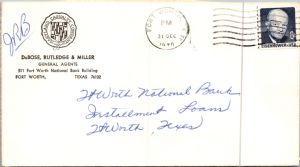 JRB
DeBOSE, RUTLEDGE & MILLER
GENERAL AGENTS
811 Fort Worth National Bank Building
FORT WORTH, TEXAS 76102
FORT WORTH
PM
31 DEC
EISENHOWER·USA
Ft Worth National Bank
Installment Loans
Ft Worth, Texas